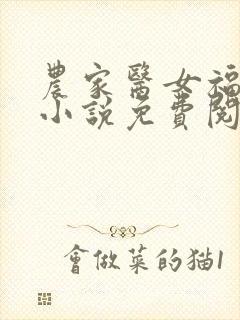 農家醫女福
小說免費閱
會做菜的猫1